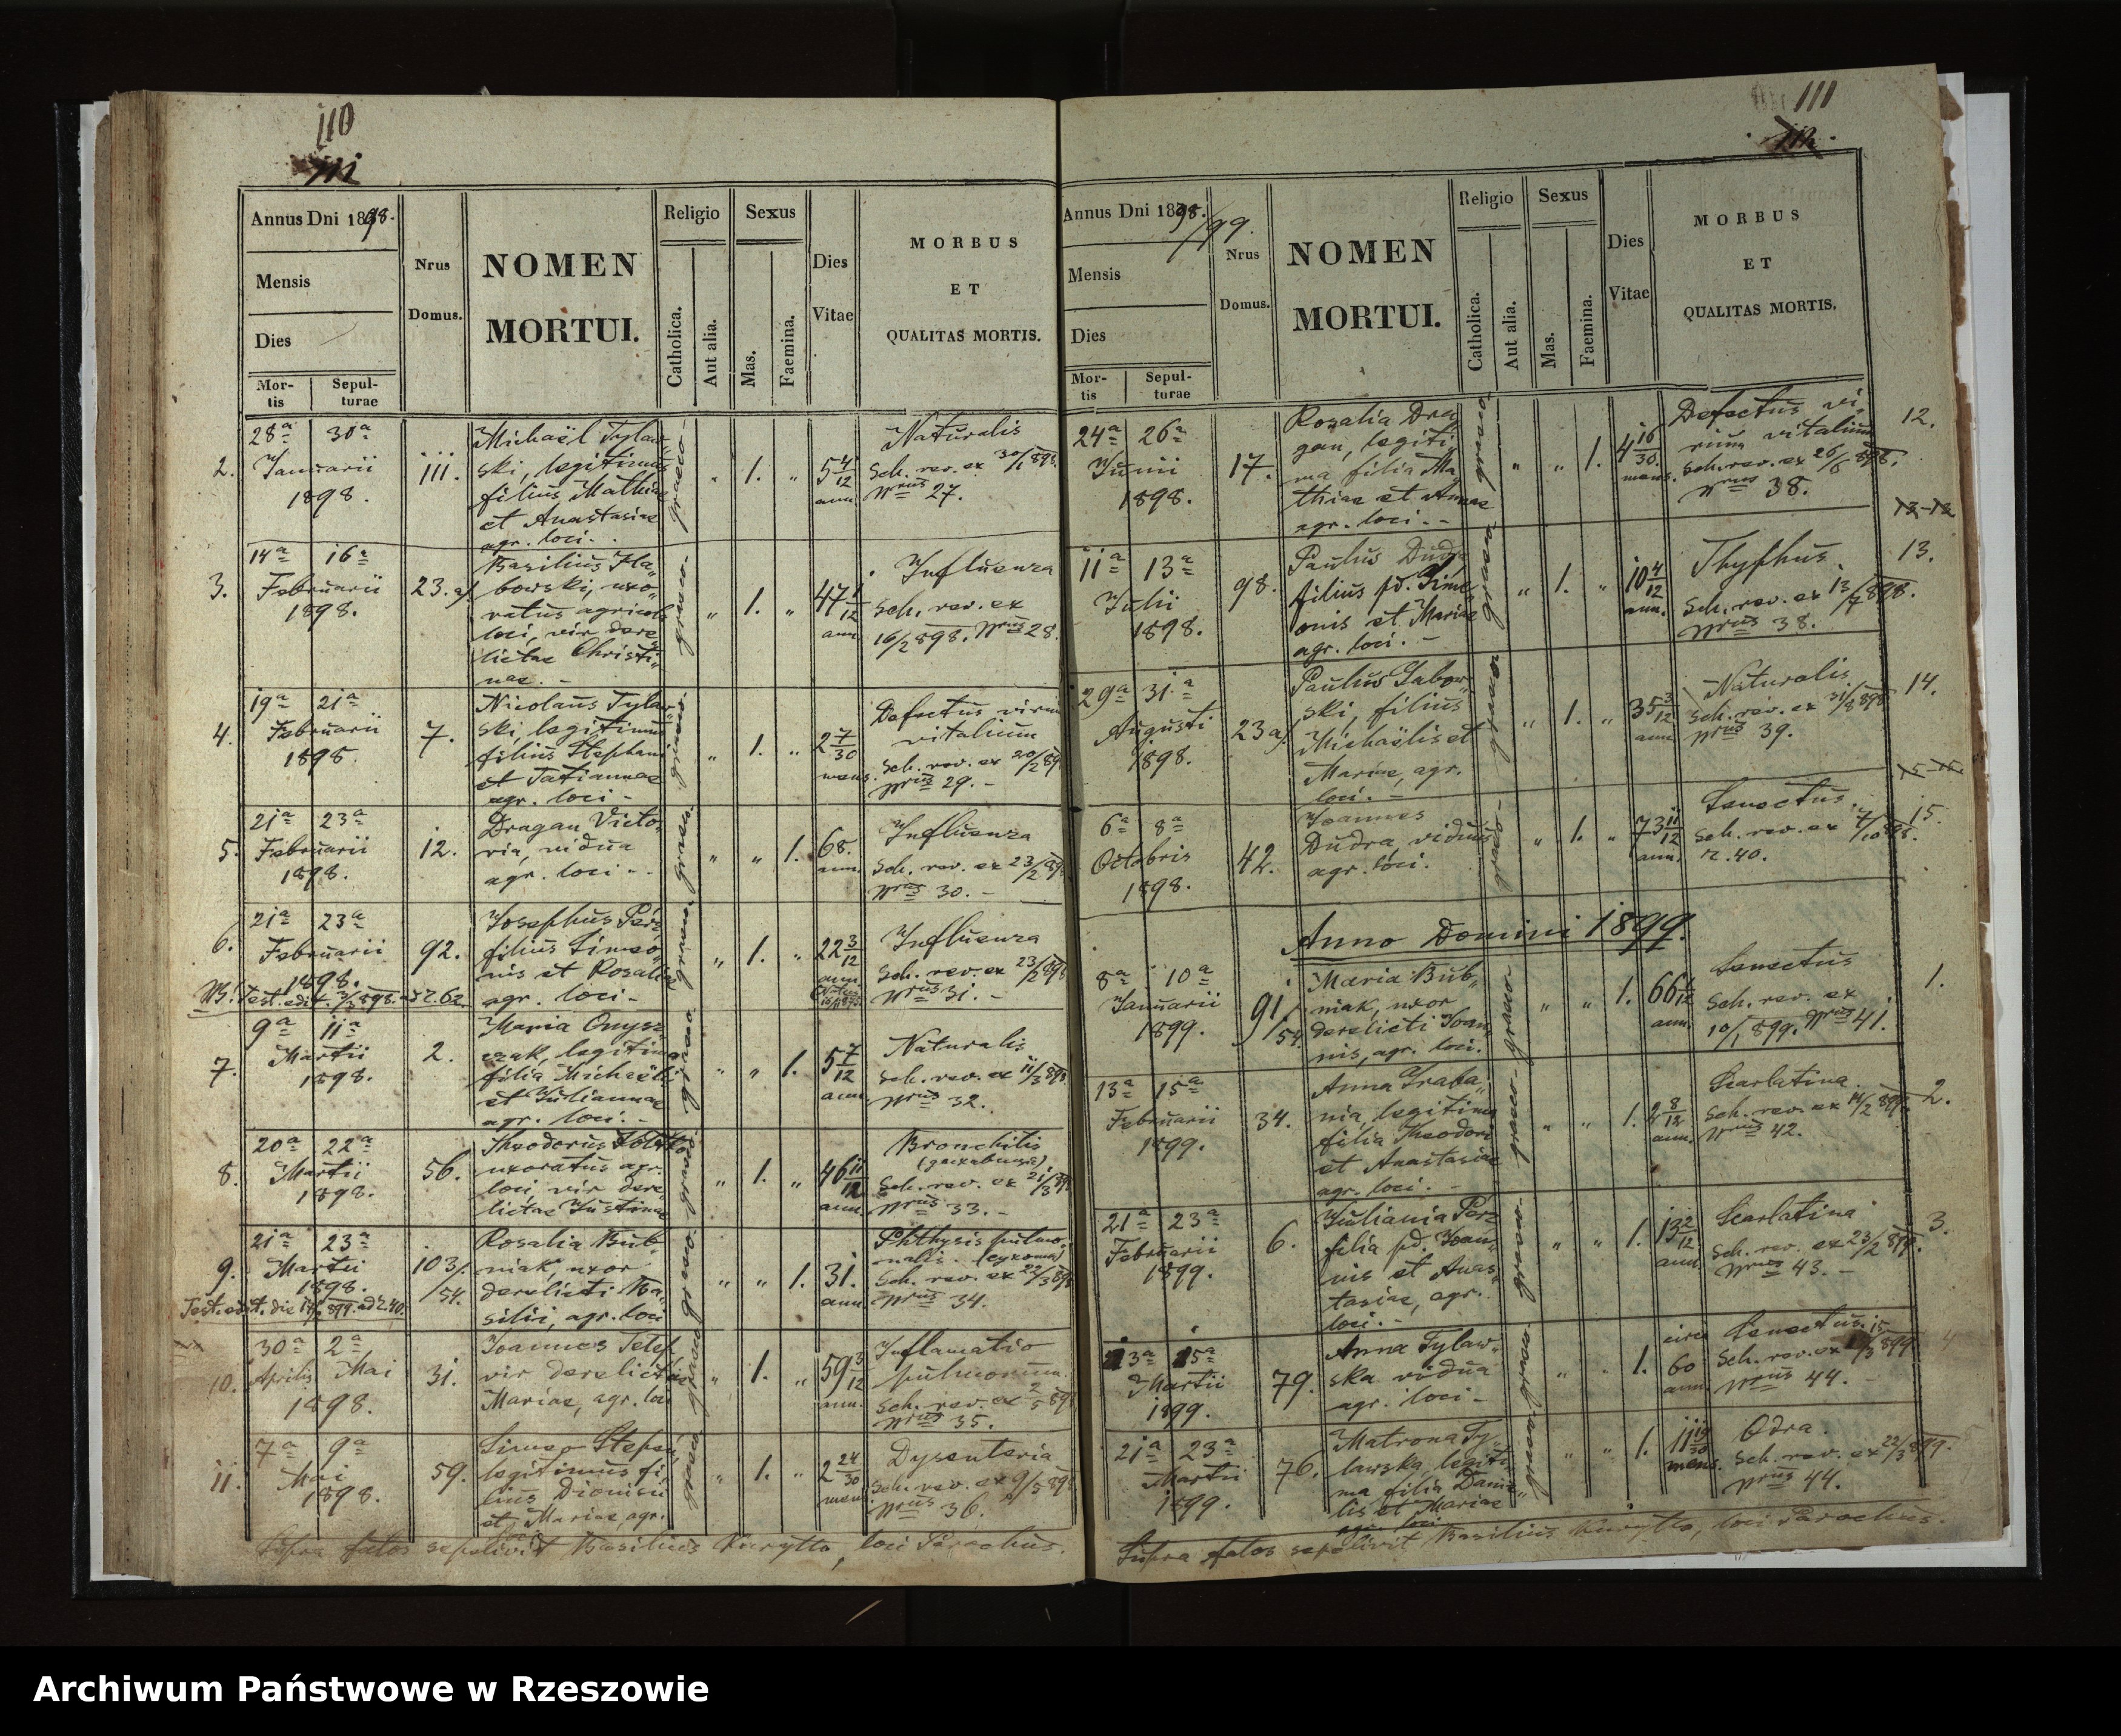 110
Annus Dni 1898.
Mensis
Dies
Mor-
tis
Sepul-
turae
Nrus
Domus.
NOMEN
MORTUI.
Religio
Catholica.
Aut alia.
Sexus
Mas.
Faemina.
Dies
Vitae
MORBUS
ET
QUALITAS MORTIS.
2.
28a 30a
Januarii
1898.
111.
Michaël Tylaw„
ski, legitimus
filius Mathiae
et Anastasiae
agr. loci.
graeco-
1.
5 4/12
ann.
Naturalis
Sch. rev. ex 30/1 898.
Nrus 27.
3.
14a 16a
Februarii
1898.
23.a/
Basilius Ha„
bowski, uxo„
ratus agricola
loci, vir dere„
lictae Christi„
nae. -
graeco-
1.
47 1/12
ann.
Influenza
Sch. rev. ex
16/2 898. Nrus 28.
4.
19a 21a
Februarii
1898.
7.
Nicolaus Tylaw„
ski, legitimus
filius Stephani
et Tatiannae
agr. loci -
graeco.
1.
2 7/30
mens.
Defectus virium
vitalium
Sch. rev. ex 20/2 89
Nrus 29. -
5.
21a 23a
Februarii
1898.
12.
Dragan Victo„
ria, vidua
agr. loci -
graeco.
1.
68.
ann.
Influenza
Sch. rev. ex 23/2 89
Nrus 30. -
6.
21a 23a
Februarii
1898.
92.
Josephus Perz
filius Simeo„
nis et Rosaliae
agr. loci -
graeco.
1.
22 3/12
ann.
Influenza
Sch. rev. ex 23/2 898
Nrus 31. -
7.
9a 11a
Martii
1898.
2.
Maria Onysz„
czak, legitima
filia Michaëlis
et Juliannae
agr. loci. -
graeco
1.
5 7/12
ann.
Naturalis
Sch. rev. ex 11/3 898
Nrus 32.
8.
20a 22a
Martii
1898.
56.
Theodorus
uxoratus agr.
loci vir dere„
lictae Justinae
graeco-
1.
46 11/12
ann.
Bronchitis
Sch. rev. ex 21/3 89
Nrus 33. -
9.
21a 23a
Martii
1898.
103/
/54.
Rosalia Bub„
niak, uxor
derelicti Ba„
silii, agr. loci
graeco.
1.
31.
ann.
Phthysis pulmo„
nalis.
Sch. rev. ex 22/3 898
Nrus 34.
10.
30a 2a
Aprilis Mai
1898.
31.
Joannes Telep
vir derelictae
Mariae, agr. loci
graeco
1.
59 3/12
ann.
Inflamatio
pulmonum.
Sch. rev. ex 2/5 89
Nrus 35.
11.
7a 9a
Mai
1898.
59.
Simeo Stefan
legitimus fi„
lius Dionisii
et Mariae, agr.
loci
graeco
1.
2 24/30
mens.
Dysenteria
Sch. rev. ex 9/5 898
Nrus 36.
Supra fatos sepelivit Basilius Kuryłło, loci Parochus.
111
Annus Dni 1898.
/99.
Mensis
Dies
Mor-
tis
Sepul-
turae
Nrus
Domus.
NOMEN
MORTUI.
Religio
Catholica.
Aut alia.
Sexus
Mas.
Faemina.
Dies
Vitae
MORBUS
ET
QUALITAS MORTIS.
24a 26a
Junii
1898.
17.
Rosalia Dra„
gan, legiti„
ma filia Ma„
thiae et Annae
agr. loci. -
graeco.
1.
4 16/30.
mens.
Defectus vi„
rium vitalium
Sch. rev. ex 26/6 898.
Nrus 38.
12.
11a 13a
Julii
1898.
98.
Paulus Dudra
filius pd. Sime„
onis et Mariae
agr. loci. -
graeco
1.
10 4/12
ann.
Thyphus.
Sch. rev. ex 13/7 898.
Nrus 38.
13.
29a 31.a
Augusti
1898.
23 a/.
Paulus Habow„
ski, filius
Michaëlis et
Mariae, agr.
loci. -
graeco
1.
35 3/12
ann.
Naturalis
Sch. rev. ex 31/8 898
Nrus 39.
14.
6a 8a
Octobris
1898.
42.
Joannes
Dudra, viduus
agr. loci.
graeco-
1.
73 11/12
ann.
Senectus.
Sch. rev. ex 7/10 898.
r. 40.
15.
Anno Domini 1899.
8a 10a
Januarii
1899.
91/
54.
Maria Bub„
niak, uxor
derelicti Joan„
nis, agr. loci.
graeco
1.
66
ann.
Senectus
Sch. rev. ex
10/1 899. Nrus 41.
1.
13a 15a
Februarii
1899.
34.
Anna Hraba„
nia, legitima
filia Theodori
et Anastasiae
agr. loci. -
graeco-
1.
8/12
ann.
Scarlatina.
Sch. rev. ex 14/2 899.
Nrus 42.
2.
21a 23a
Februarii
1899.
6.
Juliania Perz
filia pd. Joan„
nis et Anas„
tasiae, agr.
loci. -
graeco.
1.
13 2/12
ann.
Scarlatina
Sch. rev. ex 23/2 899.
Nrus 43. -
3.
13a 15a
Martii
1899.
79.
Anna Tylaw„
ska vidua
agr. loci -
graeco.
1.
circa
60
ann.
Senectus.
Sch. rev. ex 15/3 899
Nrus 44. -
4
21a 23a
Martii
1899.
76.
Matrona Ty„
lawska, legiti„
ma filia Danie„
lis et Mariae
agr. loci
graeco.
1.
11 19/30
mens.
Odra.
Sch. rev. ex 22/3 899.
Nrus 44.
Supra fatos sepelivit Basilius Kuryłło, loci Parochus.
Archiwum Państwowe w Rzeszowie